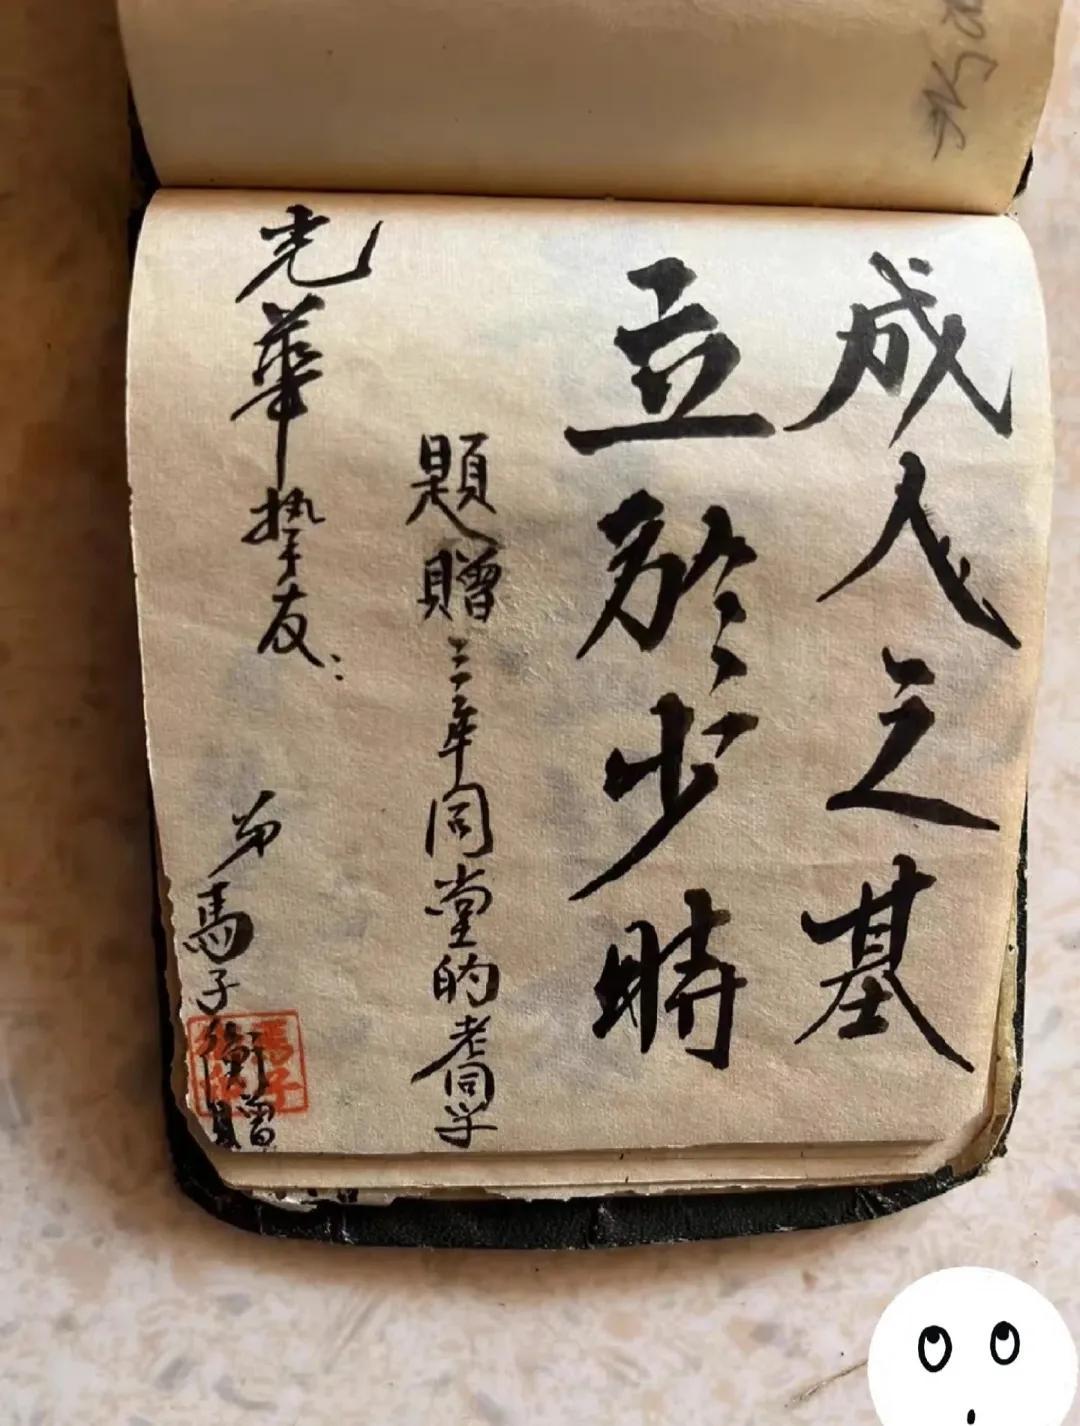 成人之基
立於少時
題贈三年同堂的老同学
光華摯友：
弟馬子衡贈